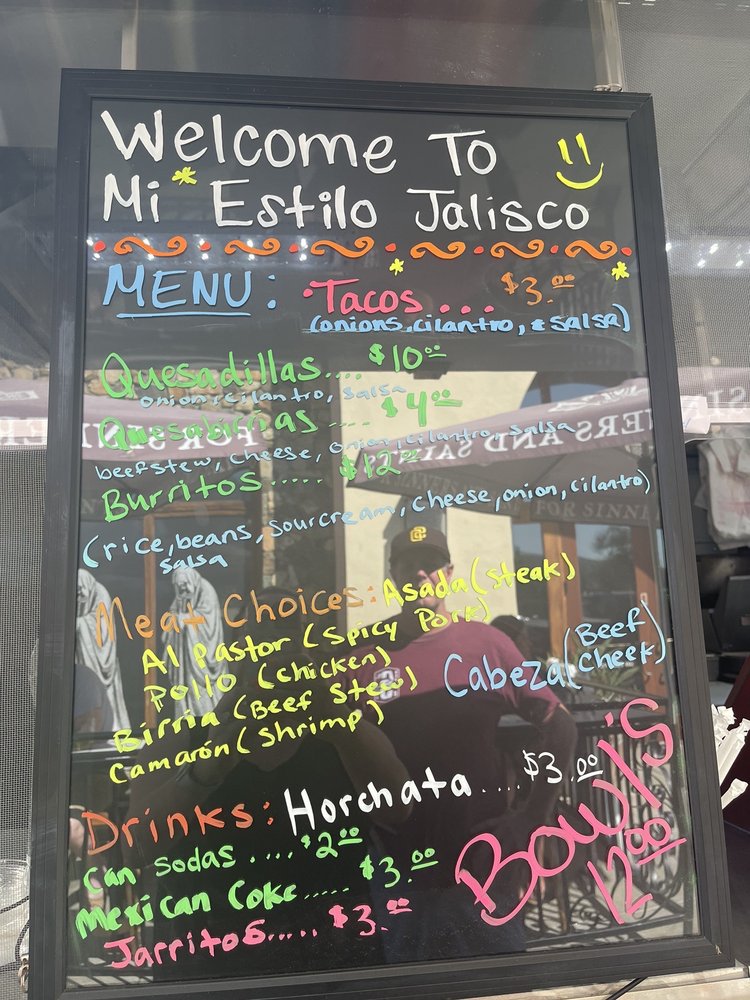 Welcome To
Mi Estilo Jalisco
MENU: Tacos... $3.00
(onions, cilantro, & salsa)
Quesadillas.... $10.00
onion, cilantro, salsa
Quesabirrias .... $4.00
beef stew, cheese, onion, cilantro, salsa
Burritos..... $12.00
(rice, beans, sour cream, cheese, onion, cilantro)
salsa
Meat Choices: Asada (steak)
Al Pastor (Spicy Pork)
Pollo (chicken)
Cabeza (Beef Cheek)
Birria (Beef Stew)
Camarón (Shrimp)
Drinks: Horchata .... $3.00
Can Sodas .... $2.00
Mexican Coke..... $3.00
Jarritos..... $3.00
Bowls
12.00
FOR SINNERS
SINNERS AND SAINTS
FOR SINN